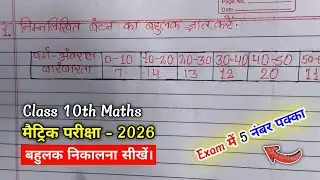 Page No.
1. निम्नलिखित बंटन का बहुलक ज्ञात करें:
वर्ग-अंतराल 0-10 10-20 20-30 30-40 40-50 50-6
बारंबारता 7 14 13 12 20 11
Class 10th Maths
मैट्रिक परीक्षा - 2026
बहुलक निकालना सीखें।
Exam में 5 नंबर पक्का